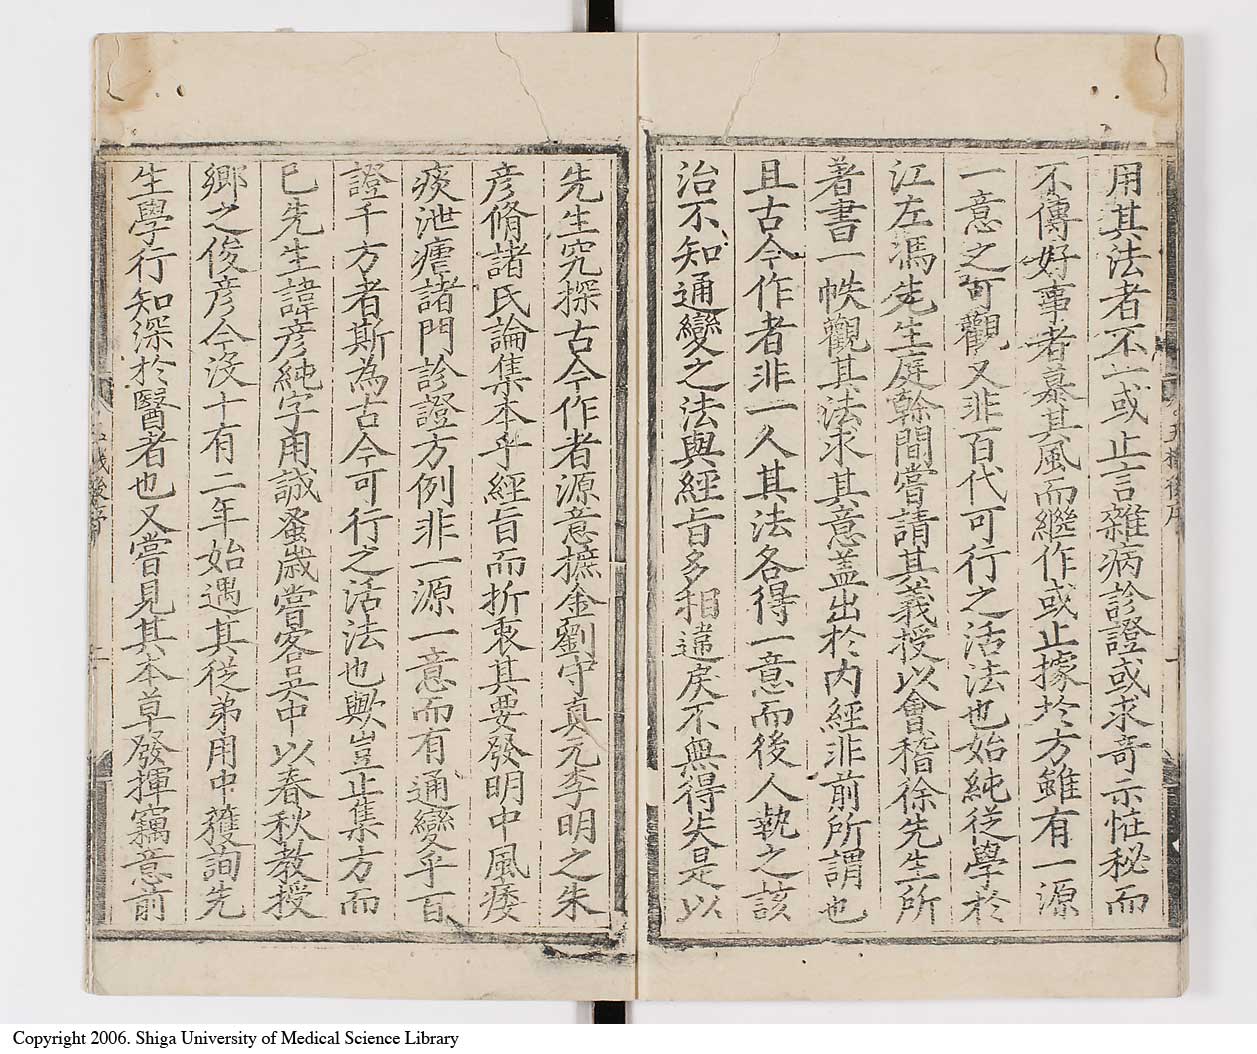 用其法者不一或止言雜病診證或求竒示恠秘而
不傳好事者慕其風而繼作或止據扵方雖有一源
一意之可觀又非百代可行之活法也始純従學扵
江左馮先生庭榦間嘗請其義授以㑹稽徐先生所
著書一帙觀其法求其意盖出扵内經非前所謂也
且古今作者非一人其法各得一意而後人執之該
治不知通變之法與經旨多相違戾不無得失是以
先生究探古今作者源意摭金劉守真元李明之朱
彦脩諸氏論集本乎經旨而折衷其要發明中風痿
痰泄瘧諸門診證方例非一源一意而有通變乎百
證千方者斯為古今可行之活法也歟豈止集方而
已先生諱彦純字用誠蚤歳嘗客吴中以春秋教授
郷之俊彦今沒十有二年始遇其従弟用中獲詢先
生學行知深扵醫者也又嘗見其本草發揮竊意前
Copyright 2006. Shiga University of Medical Science Library